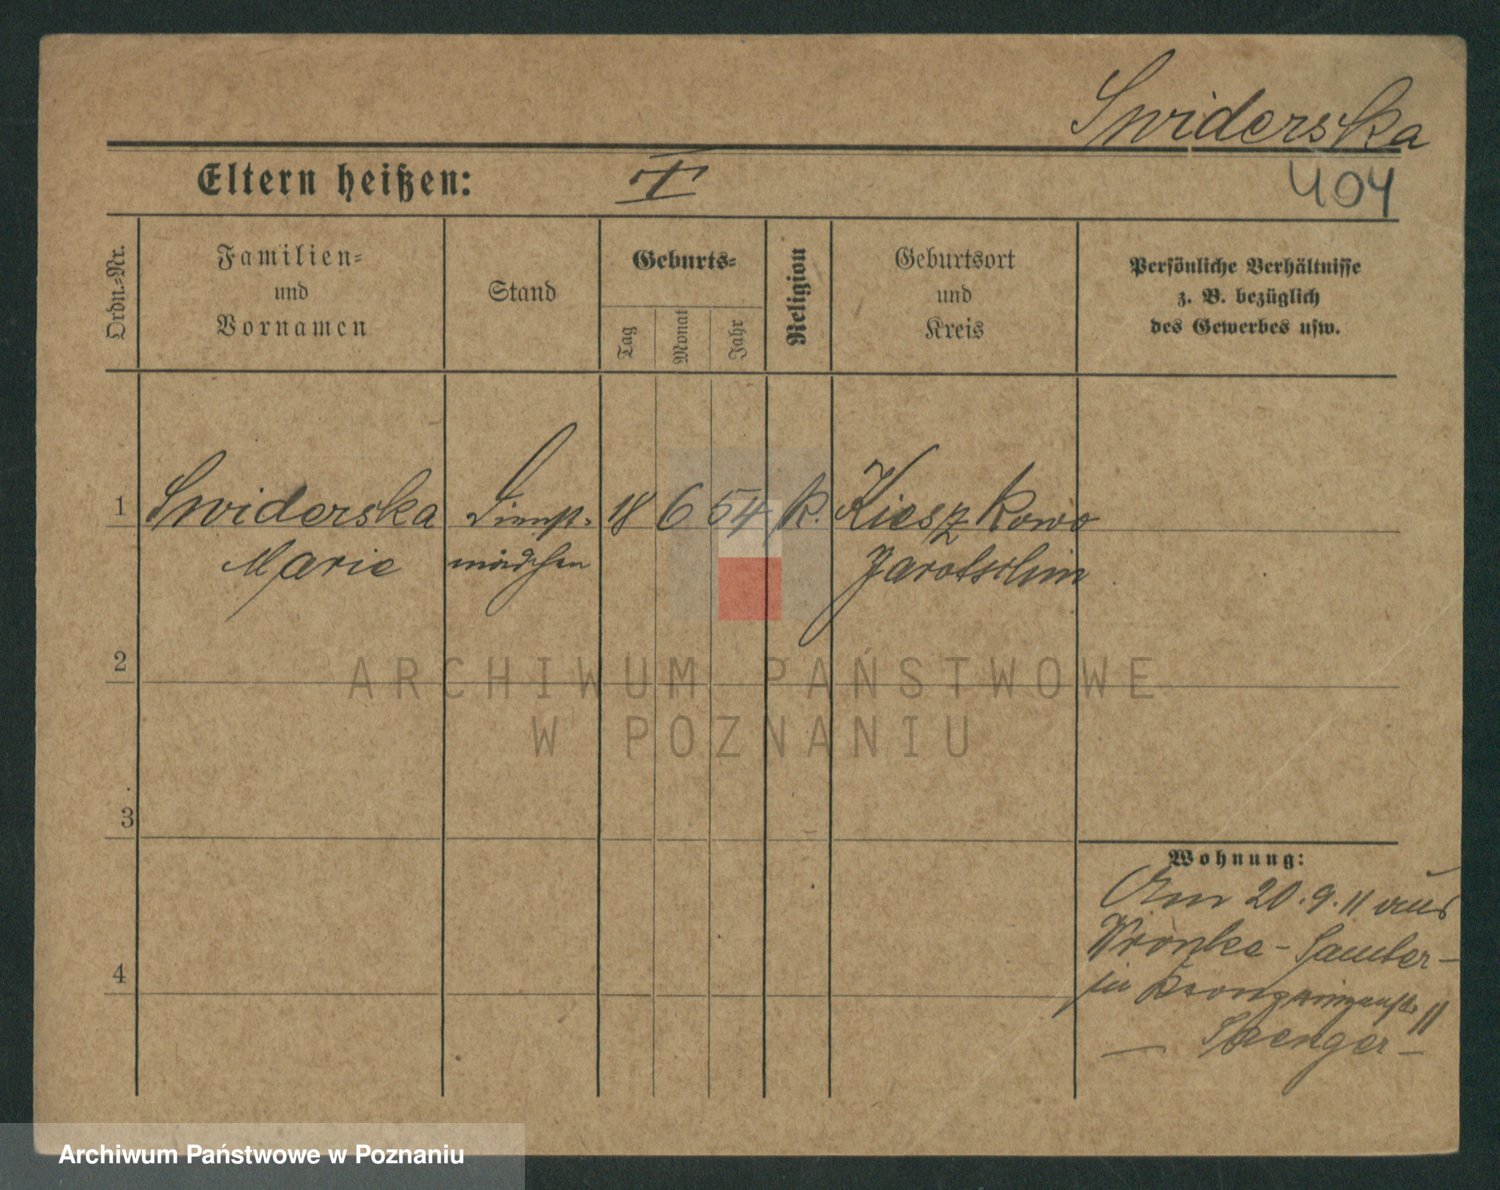 Swiderska
Eltern heißen:
I
404
Ordn.-Nr.
Familien-
und
Vornamen
Stand
Geburts-
Tag
Monat
Jahr
Religion
Geburtsort
und
Kreis
Persönliche Verhältnisse
z. B. bezüglich
des Gewerbes usw.
1 Swiderska Dienst- 18 6 54 k. Kieszkowo
Marie mädchen Jarotschin
2
ARCHIWUM PAŃSTWOWE
W POZNANIU
3
Wohnung:
Am 20.9.11 aus
Wronke - Samter -
in Kronprinzenstr. 11
4
Archiwum Państwowe w Poznaniu